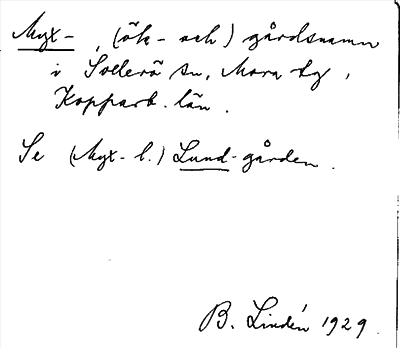 Myx- , (ök- och) gårdsnamn
i Sollerö sn, Mora tg,
Kopparb. län.
Se (Myx- l.) Lund-gården.
B. Lindén 1929